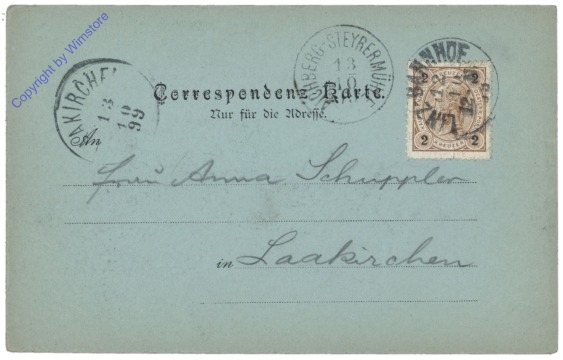 Copyright by Wimstore
AKIRCHE
13
10
99
BERG-STEYRERMÜHL
13
10
BAHNHOF
Correspondenz-Karte.
Nur für die Adresse.
2 2
2 2
An
Frau Anna Schuppler
in Laakirchen